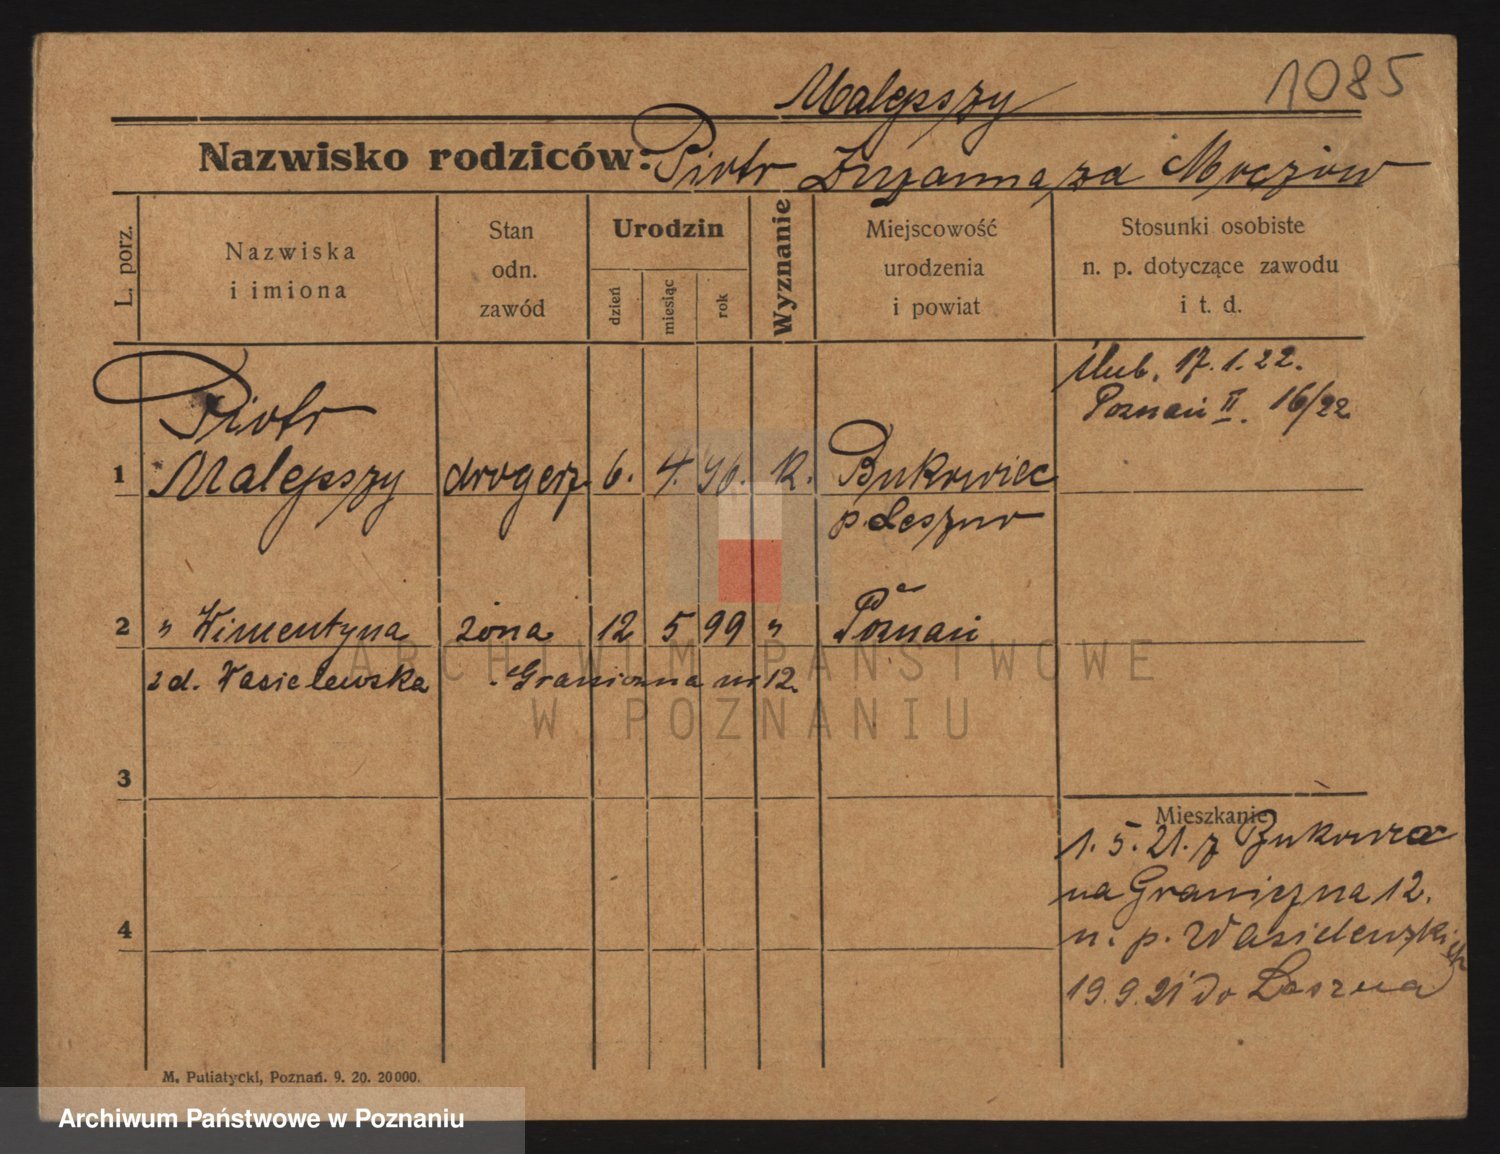 1085
Malepszy
Nazwisko rodziców: Piotr Zuzanna zd
L. porz.
Nazwiska
i imiona
Stan
odn.
zawód
Urodzin
dzień
miesiąc
rok
Wyznanie
Miejscowość
urodzenia
i powiat
Stosunki osobiste
n. p. dotyczące zawodu
i t. d.
ślub. 17.1.22.
Poznań II. 16/22
Piotr
1 Malepszy drogerz. 6. 4. 96. k. Bukowiec
p. Leszno
2 " Wimentyna żona 12 5 99 " Poznań
zd. Wasielewska Graniczna nr 12.
3
Mieszkanie
1.5.21. z Bukowca
na Graniczna 12.
u. p. Wasielewskich
4
19.9.21 do Leszna
M. Putiatycki, Poznań. 9. 20. 20000.
ARCHIWUM PAŃSTWOWE
W POZNANIU
Archiwum Państwowe w Poznaniu